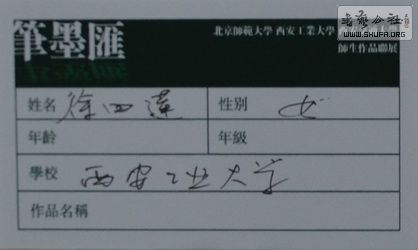 書法公社
WWW.SHUFA.ORG
筆墨匯
北京師範大學 西安工業大學
師生作品聯展
姓名 徐四蓮 性別 女
年齡 年級
學校 西安工业大学
作品名稱